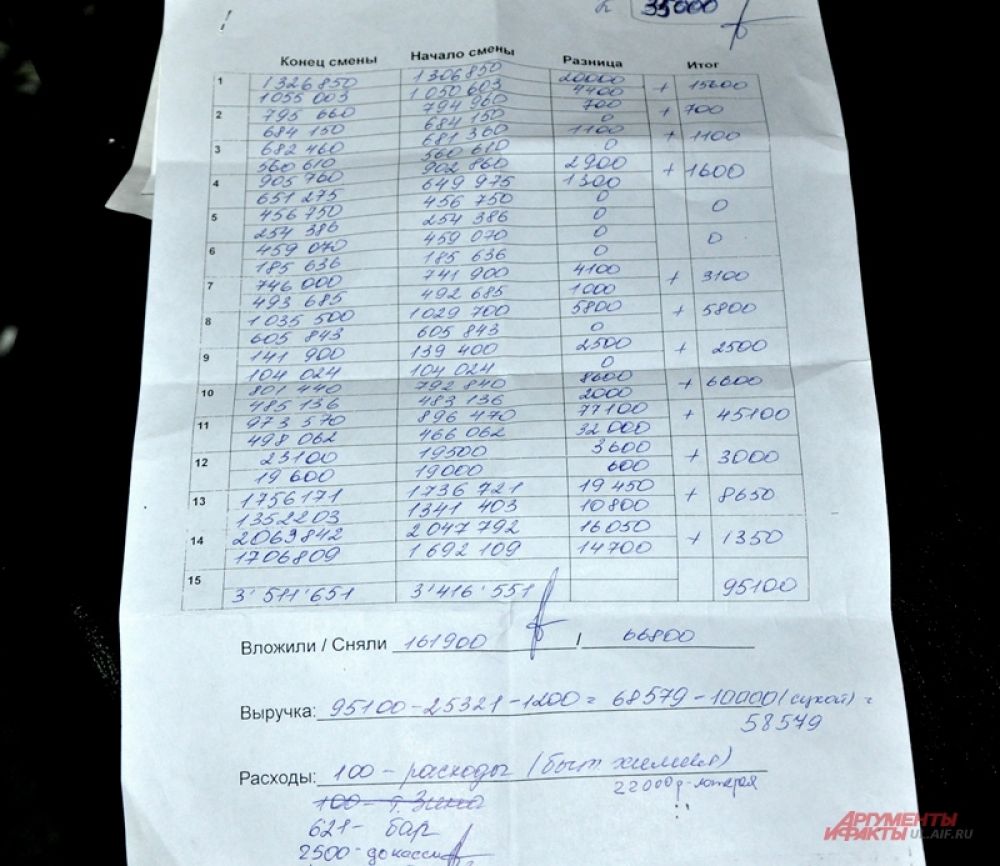 35000
Конец смены Начало смены Разница Итог
1 1326850 1306850 20000 + 15600
1055 003 1 050 603 4400
2 795 660 794 960 700 + 700
684 150 684 150 0
3 682 460 681 360 1100 + 1100
560 610 560 610 0
4 905 760 902 860 2900 + 1600
651 275 649 975 1300
5 456 750 456 750 0 0
254 386 254 386 0
6 459 070 459 070 0 0
185 636 185 636 0
7 746 000 741 900 4100 + 3100
493 685 492 685 1000
8 1035 500 1029 700 5800 + 5800
605 843 605 843 0
9 141 900 139 400 2500 + 2500
104 024 104 024 0
10 801 440 792 840 8600 + 6600
485 136 483 136 2000
11 973 570 896 470 77100 + 45100
498 062 466 062 32 000
12 23100 19500 3600 + 3000
19 600 19000 600
13 1756171 1736 721 19 450 + 8650
1352203 1341 403 10800
14 2063842 2 047 792 16050 + 1350
1706809 1 692 109 14700
15 95100
3'511'651 3'416'551
Вложили / Сняли 161900 / 66800
Выручка: 95100-25321-1200 = 68579-10000 (сухой) =
58579
Расходы: 100 - расходы (быт химия)
22000р-лотерея
621- бар
2500-
АРГУМЕНТЫ
И ФАКТЫ UL.AIF.RU